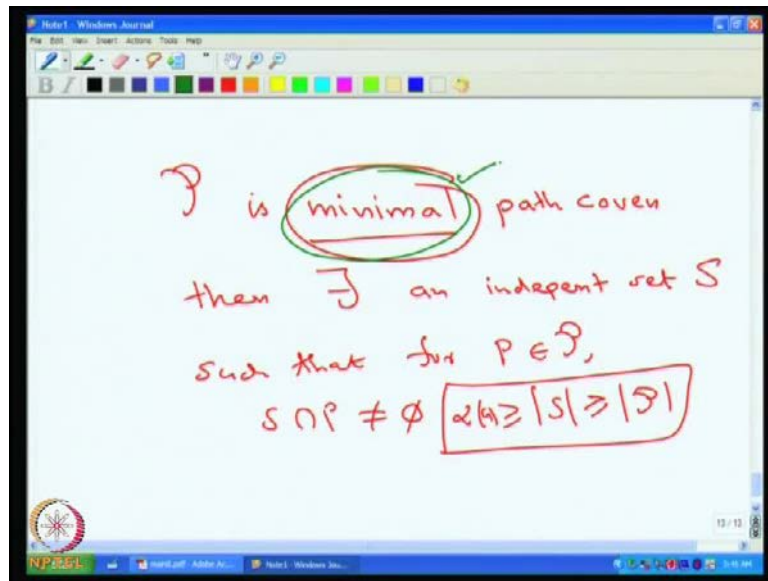 Note1 - Windows Journal
File Edit View Insert Actions Tools Help
B I
𝒫 is minimal path coven
then ∃ an indepent set S
such that for P ∈ 𝒫,
S ∩ P ≠ ϕ α(G) ≥ |S| ≥ |𝒫|
13 / 13
NPTEL Note1 - Windows Jou...